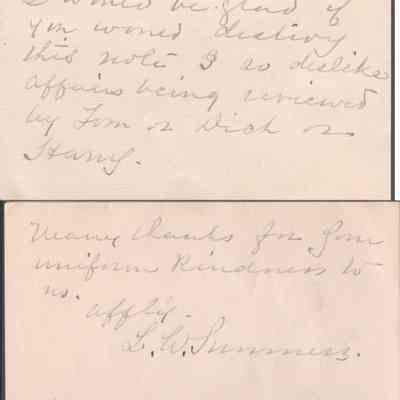 I would be glad if
you would destroy
this note I so dislike
affairs being reviewed
by Tom or Dick or
Harry.
Many thanks for your
uniform kindness to
us.
affly.
L. W. Summers.